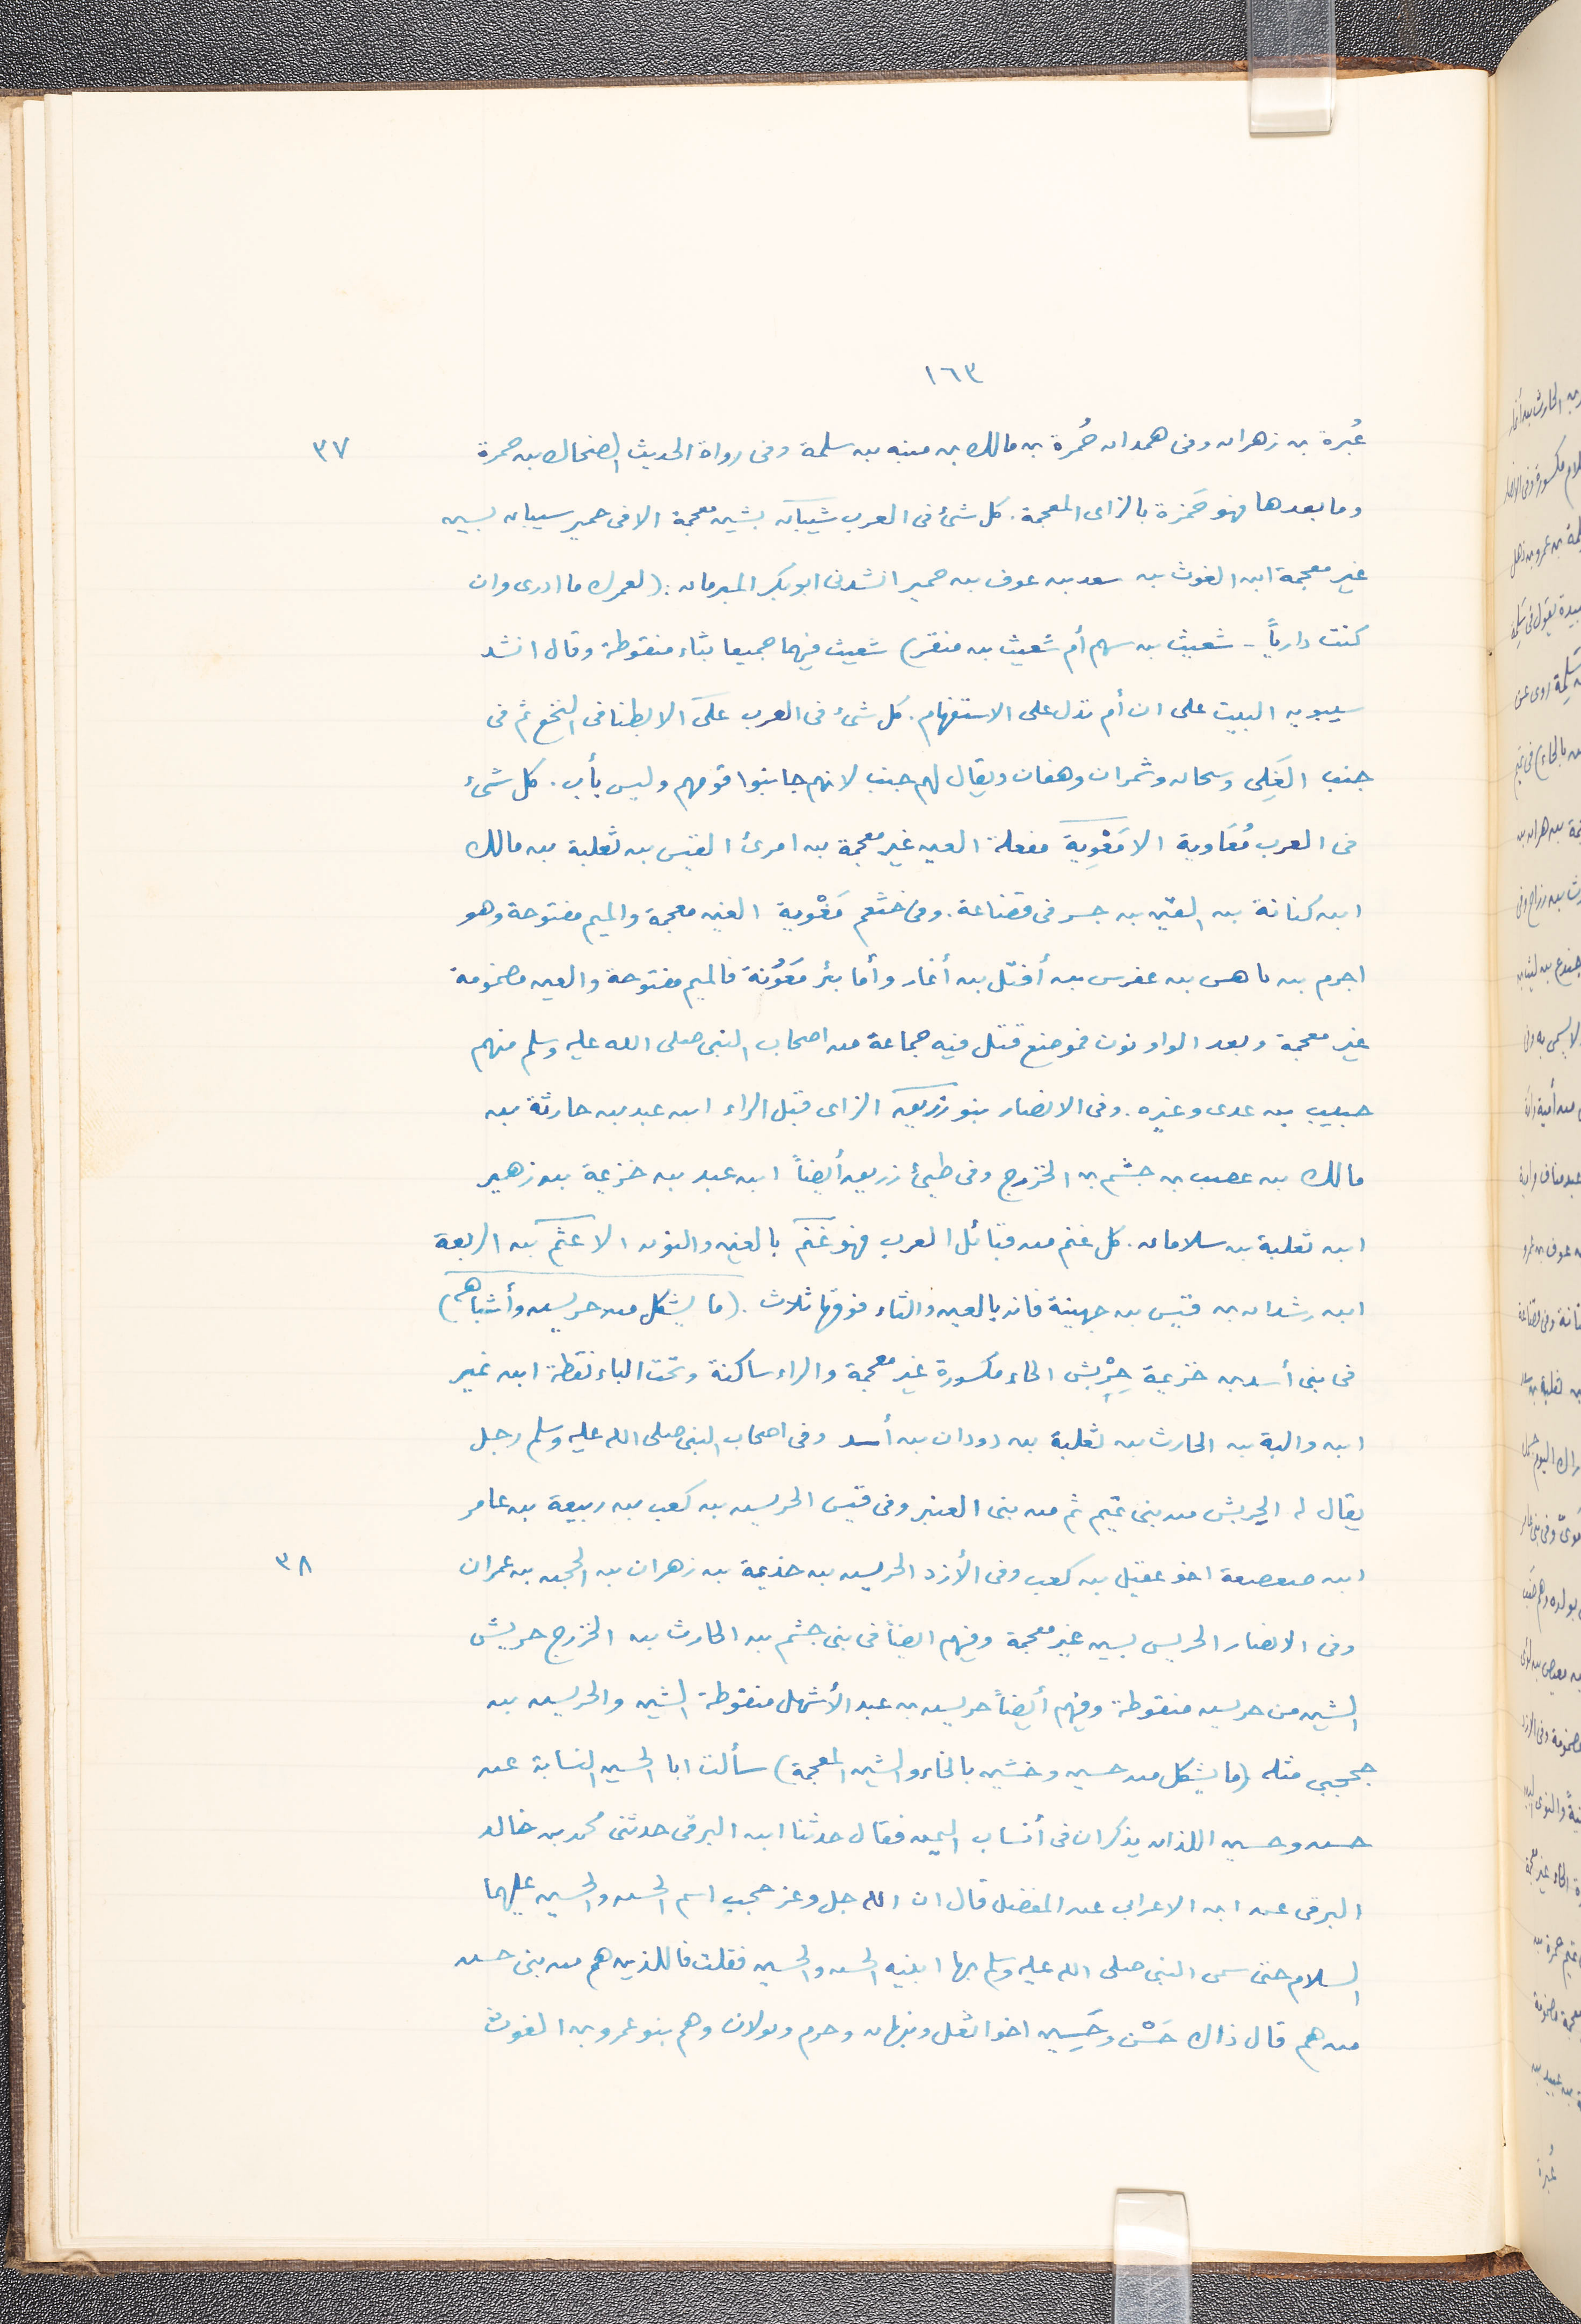 ١٦٣
عُبرة بن زهران وفى همدان حُمرة بن مالك بن منبه بن سلمة وفى رواة الحديث الضحاك بن حمرة ٣٧
وما بعدها فهو حَمزة بالزاى المعجمة. كل شئ فى العرب شيبان بشين معجمة الا فى حمير سيبان بسين
غير معجمة ابن الغوث بن سعد بن عوف بن حمير انشدنى ابو بكر المبرمان: (لعمرك ما ادرى وان
كنت دارياً - شعيث بن سهم أم شعيث بن منقر) شعيث فيهما جميعا بثاء منقوطة وقال انشد
سيبويه البيت على ان أم تدل على الاستفهام. كل شئ فى العرب عَلىّ الا بطنا فى النخع ثم فى
جنب الغَلِى وسحان وشمران وهفان ويقال لهم جنب لانهم جانبوا قومهم وليس بأب. كل شئ
فى العرب مُعَاوية الا مَعْوِيَة مفعلة العين غير معجمة بن امرئ القيس بن ثعلبة بن مالك
ابن كنانة بن القين بن جسر فى قضاعة. وفى خثعم مَغْوية الغين معجمة والميم مفتوحة وهو
اجرم بن ناهس بن عفرس بن أفتل بن أنمار وأما بئر مَعُونة فالميم مفتوحة والعين مضمومة
غير معجمة وبعد الواو نون فموضع قتل فيه جماعة من اصحاب النبى صلى الله عليه وسلم منهم
حبيب بن عدى وغيره. وفى الانصار بنو زريق الزاى قبل الراء ابن عبد بن حارثة بن
مالك بن عصب بن جشم بن الخزرج وفى طيئ زريق أيضاً ابن عبد بن خزيمة بن زهير
ابن ثعلبة بن سلامان. كل غنم من قبائل العرب فهو غنم بالغين والنون الا عثم بن الربعة
ابن رشدان بن قيس بن جهينة فانه بالعين والثاء فوقها ثلاث. (ما يشكل من حريس وأشباهه)
فى بنى أسد بن خزيمة حِرْبش الحاء مكسورة غير معجمة والراء ساكنة وتحت الباء نقطة ابن نمير
ابن والبة بن الحارث بن ثعلبة بن دودان بن أسد وفى اصحاب النبى صلى الله عليه وسلم رجل
يقال له الحِربش من بنى تميم ثم من بنى العنبر وفى قيس الحريش بن كعب بن ربيعة بن عامر
ابن صعصعة اخو عقيل بن كعب وفى الأزد الحريش بن حذيمة بن زهران بن الحجر بن عمران ٣٨
وفى الانصار الحريس بسين غير معجمة وفيهم ايضاً فى بنى جشم بن الحارث بن الخزرج حريش
الشين من حريش منقوطة وفيهم أيضاً حريش بن عبد الأشهل منقوطة الشين والحريش بن
جحجبى مثله (ما يشكل من حسين وخشين بالخاء والشين المعجمة) سألت ابا الحسين النسابة عن
حسن وحسين اللذان يذكران فى أنساب اليمن فقال حدثنا ابن البرقى حدثنى محمد بن خالد
البرقى عن ابن الاعرابى عن المفضل قال ان الله جل وعز حجب اسم الحسن والحسين عليهما
السلام حتى سمى النبى صلى الله عليه وسلم بها ابنيه الحسن والحسين فقلت فاللذين هم من بنى حسن
من هم قال ذاك حَسْن وحَسِين اخوا ثعل ونبهان وجرم وبولان وهم بنو عمرو بن الغوث